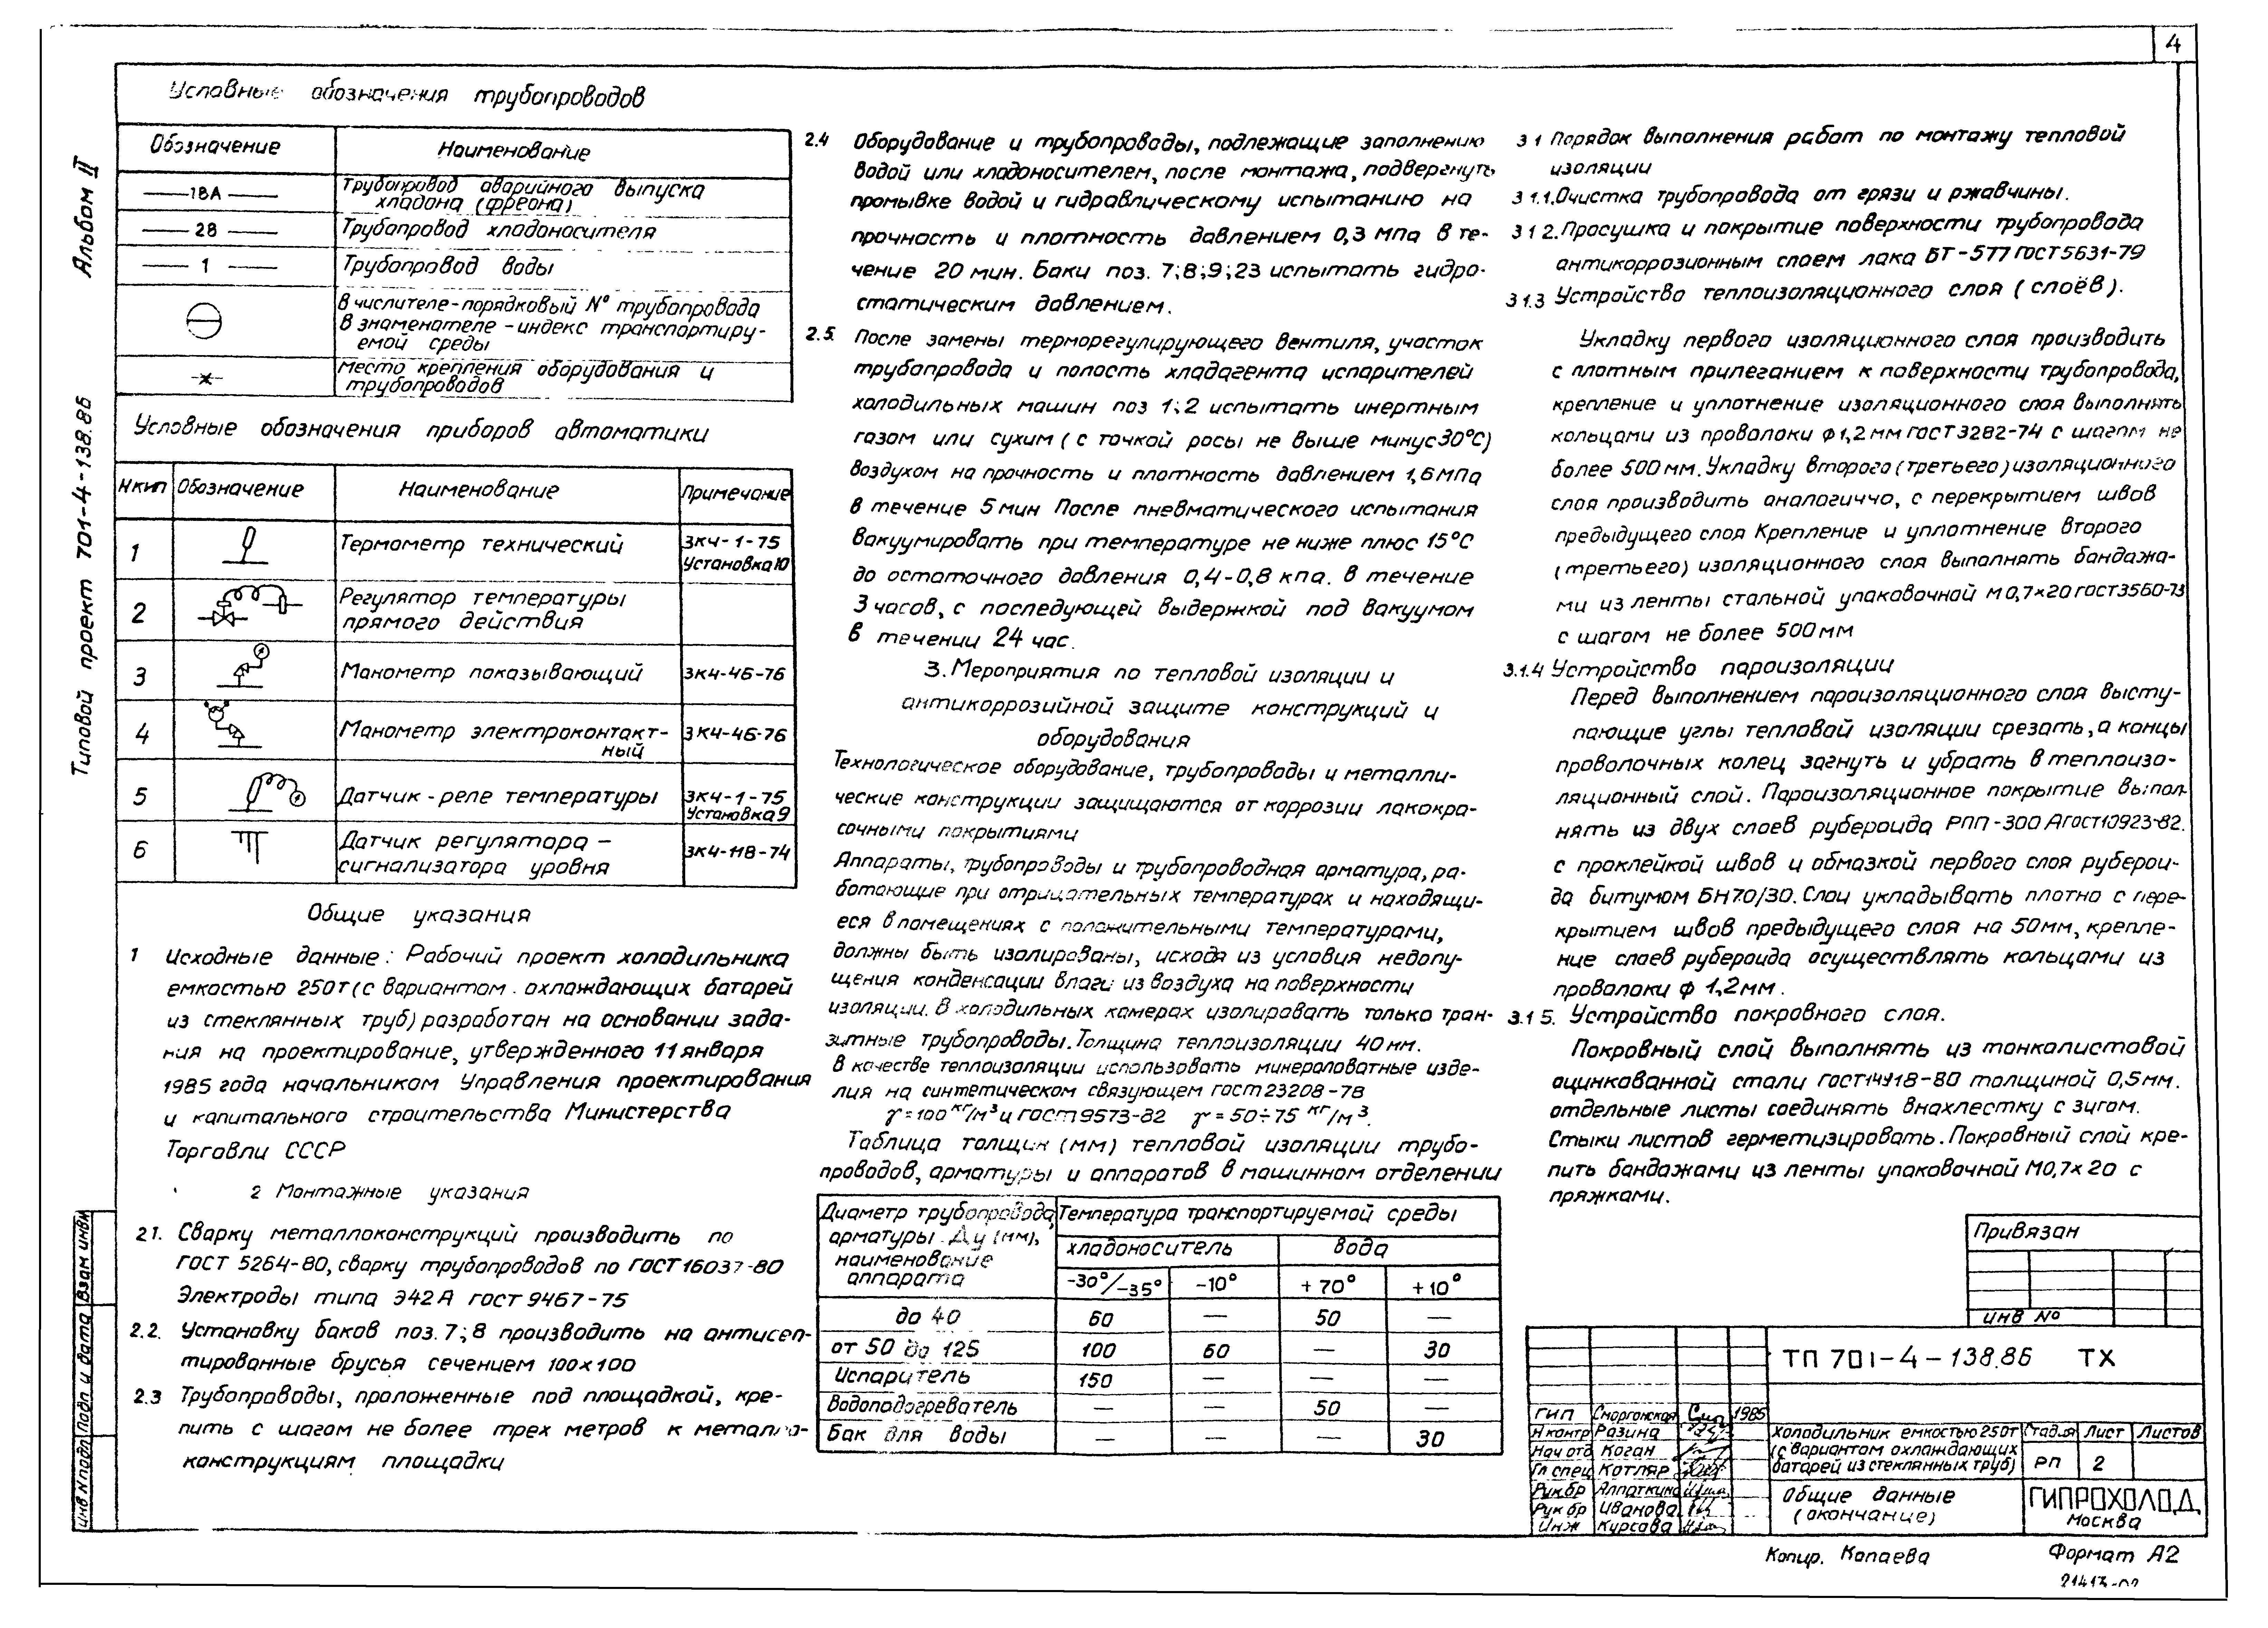 4
Альбом II
Типовой проект 701-4-138.86
Условные обозначения трубопроводов
Обозначение Наименование
18А Трубопровод аварийного выпуска
хладона (фреона)
28 Трубопровод хладоносителя
1 Трубопровод воды
В числителе - порядковый № трубопровода
В знаменателе - индекс транспортиру-
емой среды
Место крепления оборудования и
трубопроводов
Условные обозначения приборов автоматики
N кип Обозначение Наименование Примечание
1 Термометр технический ЗК4-1-75
Установка 10
2 Регулятор температуры
прямого действия
3 Манометр показывающий ЗК4-46-76
4 Манометр электроконтакт-
ный ЗК4-46-76
5 Датчик-реле температуры ЗК4-1-75
Установка 9
6 Датчик регулятора –
сигнализатора уровня ЗК4-118-74
Общие указания
1 Исходные данные: Рабочий проект холодильника
емкостью 250т (с вариантом охлаждающих батарей
из стеклянных труб) разработан на основании зада-
ния на проектирование, утвержденного 11 января
1985 года начальником Управления проектирования
и капитального строительства Министерства
Торговли СССР
2 Монтажные указания
2.1. Сварку металлоконструкций производить по
ГОСТ 5264-80, сварку трубопроводов по ГОСТ 16037-80
Электроды типа Э42А ГОСТ 9467-75
2.2. Установку баков поз. 7; 8 производить на антисеп-
тированные брусья сечением 100×100
2.3 Трубопроводы, проложенные под площадкой, кре-
пить с шагом не более трех метров к металло-
конструкциям площадки
2.4 Оборудование и трубопроводы, подлежащие заполнению
водой или хладоносителем, после монтажа, подвергнуть
промывке водой и гидравлическому испытанию на
прочность и плотность давлением 0,3 МПа в те-
чение 20 мин. Баки поз. 7; 8; 9; 23 испытать гидро-
статическим давлением.
2.5. После замены терморегулирующего вентиля, участок
трубопровода и полость хладагента испарителей
холодильных машин поз 1; 2 испытать инертным
газом или сухим (с точкой росы не выше минус 30°С)
воздухом на прочность и плотность давлением 1,6 МПа
в течение 5 мин После пневматического испытания
вакуумировать при температуре не ниже плюс 15°С
до остаточного давления 0,4-0,8 кпа. в течение
3 часов, с последующей выдержкой под вакуумом
в течении 24 час.
3. Мероприятия по тепловой изоляции и
антикоррозийной защите конструкций и
оборудования
Технологическое оборудование, трубопроводы и металли-
ческие конструкции защищаются от коррозии лакокра-
сочными покрытиями
Аппараты, трубопроводы и трубопроводная арматура, ра-
ботающие при отрицательных температурах и находящи-
еся в помещениях с положительными температурами,
должны быть изолированы, исходя из условия недопу-
щения конденсации влаги из воздуха на поверхности
изоляции. В холодильных камерах изолировать только тран-
зитные трубопроводы. Толщина теплоизоляции 40 мм.
В качестве теплоизоляции использовать минераловатные изде-
лия на синтетическом связующем ГОСТ 23208-78
γ = 100 кг/м³ и ГОСТ 9573-82 γ = 50÷75 кг/м³.
Таблица толщин (мм) тепловой изоляции трубо-
проводов, арматуры и аппаратов в машинном отделении
Диаметр трубопровода, Температура транспортируемой среды
арматуры Ду (мм),
наименование
аппарата хладоноситель вода
-30°/-35° -10° +70° +10°
до 40 60 — 50 —
от 50 до 125 100 60 — 30
Испаритель 150 — — —
Водоподогреватель — — 50 —
Бак для воды — — — 30
3 1 Порядок выполнения работ по монтажу тепловой
изоляции
3 1.1. Очистка трубопровода от грязи и ржавчины.
3 1 2. Просушка и покрытие поверхности трубопровода
антикоррозионным слоем лака БТ-577 ГОСТ 5631-79
3.1.3 Устройство теплоизоляционного слоя (слоёв).
Укладку первого изоляционного слоя производить
с плотным прилеганием к поверхности трубопровода,
крепление и уплотнение изоляционного слоя выполнять
кольцами из проволоки ф1,2мм ГОСТ 3282-74 с шагом не
более 500 мм. Укладку второго (третьего) изоляционного
слоя производить аналогично, с перекрытием швов
предыдущего слоя Крепление и уплотнение второго
(третьего) изоляционного слоя выполнять бандажа-
ми из ленты стальной упаковочной М 0,7×20 ГОСТ 3560-73
с шагом не более 500 мм
3.1.4 Устройство пароизоляции
Перед выполнением пароизоляционного слоя высту-
пающие углы тепловой изоляции срезать, а концы
проволочных колец загнуть и убрать в теплоизо-
ляционный слой. Пароизоляционное покрытие выпол-
нять из двух слоев рубероида РПП-300 А ГОСТ 10923-82.
с проклейкой швов и обмазкой первого слоя руберои-
да битумом БН 70/30. Слои укладывать плотно с пере-
крытием швов предыдущего слоя на 50 мм, крепле-
ние слоев рубероида осуществлять кольцами из
проволоки ф 1,2 мм.
3.1 5. Устройство покровного слоя.
Покровный слой выполнять из тонколистовой
оцинкованной стали ГОСТ 14918-80 толщиной 0,5 мм.
отдельные листы соединять внахлестку с зигом.
Стыки листов герметизировать. Покровный слой кре-
пить бандажами из ленты упаковочной М0,7×20 с
пряжками.
Привязан
ИНВ №
ТП 701-4-138.86 ТХ
ГИП Сморгонская 1985
Н контр Разина
Нач отд Коган
Гл спец Котляр
Рук бр Алпаткина
Рук бр Иванова
Инж Курсова
Холодильник емкостью 250т
(с вариантом охлаждающих
батарей из стеклянных труб)
Стадия Лист Листов
РП 2
Общие данные
(окончание)
ГИПРОХОЛОД
Москва
Инв N подл Подп и дата Взам инв N
Копир. Копаева Формат А2